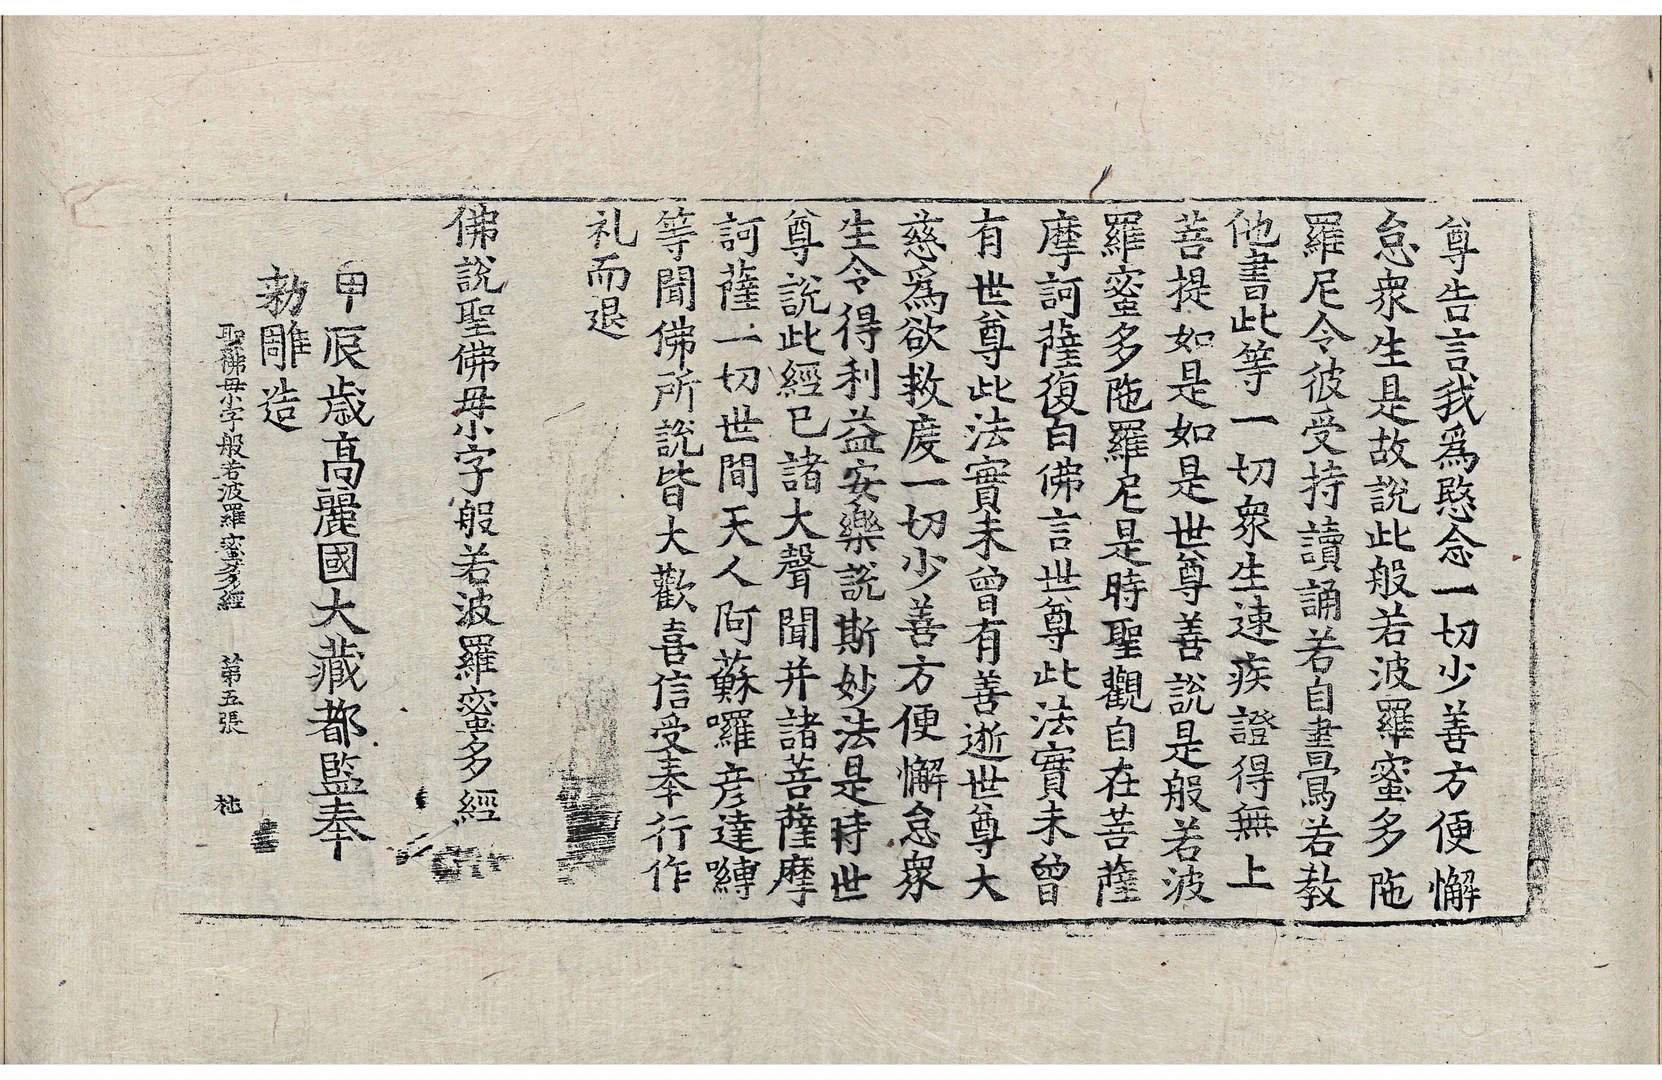 尊告言我爲愍念一切少善方便懈
怠衆生是故說此般若波羅蜜多陁
羅尼令彼受持讀誦若自書寫若教
他書此等一切衆生速疾證得無上
菩提如是如是世尊善說是般若波
羅蜜多陁羅尼是時聖觀自在菩薩
摩訶薩復白佛言世尊此法實未曾
有世尊此法實未曾有善逝世尊大
慈爲欲救度一切少善方便懈怠衆
生令得利益安樂說斯妙法是時世
尊說此經已諸大聲聞并諸菩薩摩
訶薩一切世間天人阿蘇囉彦達嚩
等聞佛所說皆大歡喜信受奉行作
礼而退
佛說聖佛母小字般若波羅蜜多經
甲辰歲高麗國大藏都監奉
勅雕造
聖佛母小字般若波羅蜜多經 第五張